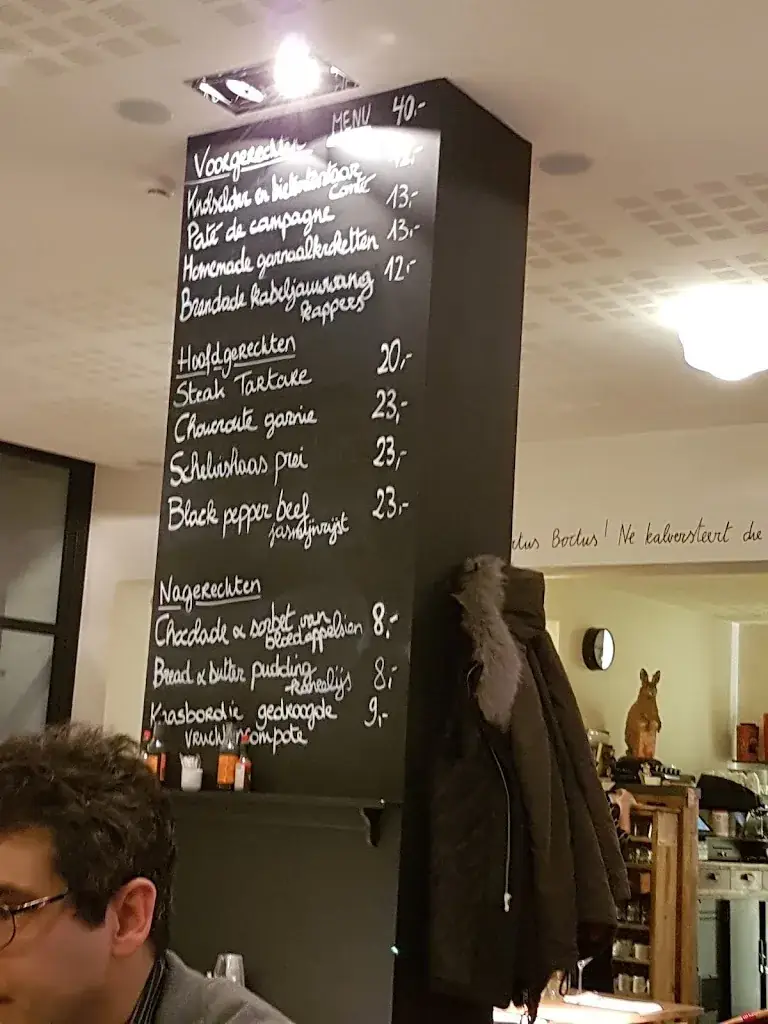 MENU 40,-
Voorgerechten
Knolselder en bietentartaar 12,-
Comté
Paté de campagne 13,-
Homemade garnaalkroketten 13,-
Brandade kabeljauwwang 12,-
kappers
Hoofdgerechten
Steak Tartare 20,-
Choucroute garnie 23,-
Schelvishaas prei 23,-
Black pepper beef 23,-
jasmijnrijst
Nagerechten
Chocolade & sorbet van 8,-
bloedappelsien
Bread & butter pudding 8,-
kaneelijs
Kaasbordje gedroogde 9,-
vruchtencompote
Boctus! Ne kalversteert die